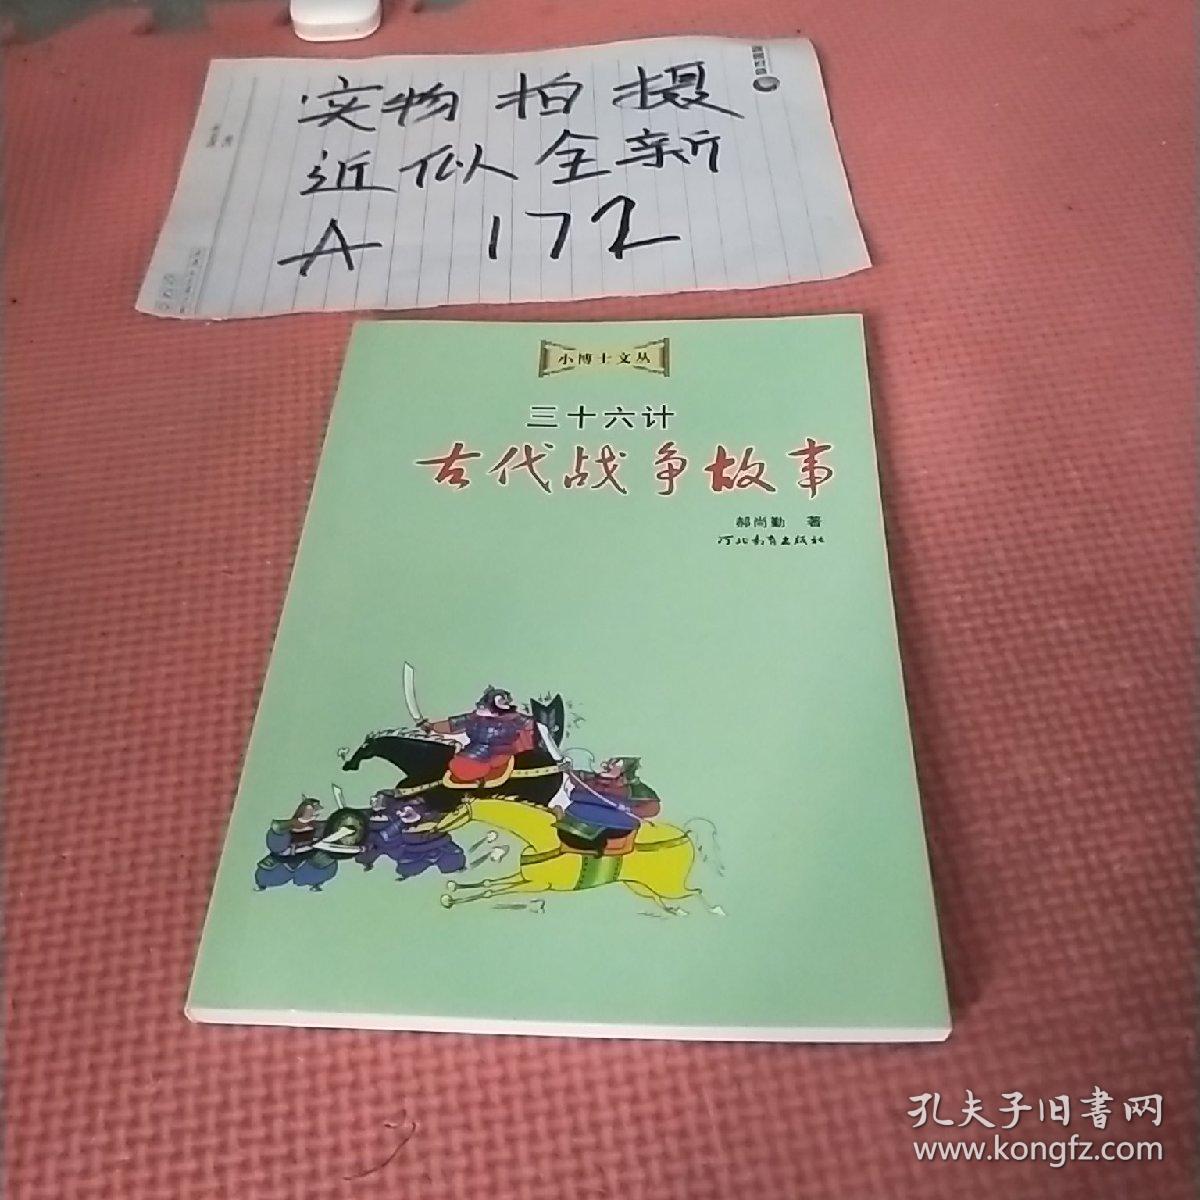 实物拍摄
近似全新
A 172
小博士文丛
三十六计
古代战争故事
郝尚勤 著
河北教育出版社
孔夫子旧书网
www.kongfz.com